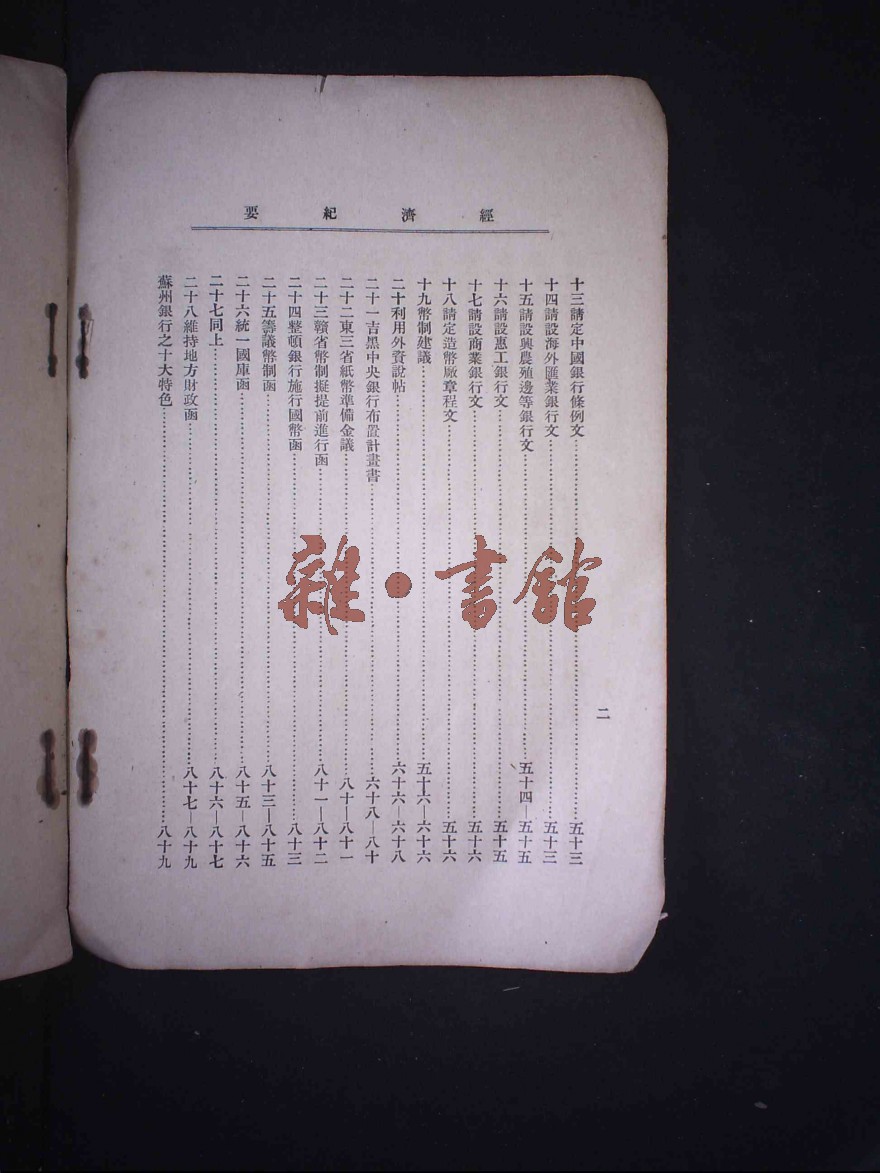 經濟紀要
二
十三請定中國銀行條例文……五十三
十四請設海外匯業銀行文……五十三
十五請設興農殖邊等銀行文……五十四—五十五
十六請設惠工銀行文……五十五
十七請設商業銀行文……五十六
十八請定造幣廠章程文……五十六
十九幣制建議……五十六—六十六
二十利用外資說帖……六十六—六十八
二十一吉黑中央銀行布置計畫書……六十八—八十
二十二東三省紙幣準備金議……八十—八十一
二十三贛省幣制擬提前進行函……八十一—八十二
二十四整頓銀行施行國幣函……八十三
二十五籌議幣制函……八十三—八十五
二十六統一國庫函……八十五—八十六
二十七同上……八十六—八十七
二十八維持地方財政函……八十七—八十九
蘇州銀行之十大特色……八十九
雜·書館